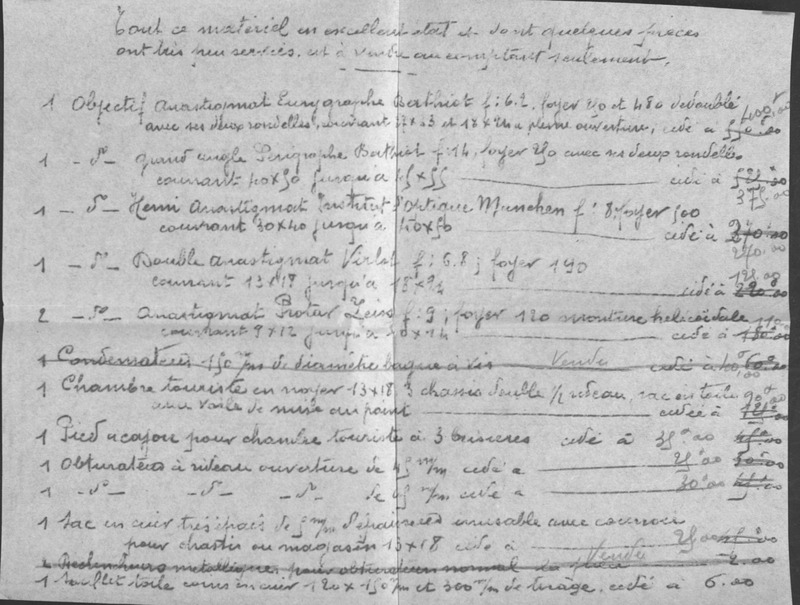 Tout ce matériel en excellent état et dont quelques pièces
ont très peu servies, est à vendre au comptant seulement.
1 Objectif Anastigmat Eurygraphe Berthiot f: 6.2, foyer et 480 dédoublé 400,00
avec ses deux rondelles, couvrant et 18 x 24 à pleine ouverture, cédé à 550.00
1 - d° - grand angle Périgraphe Berthiot f: 14, foyer 250 avec ses deux rondelles
courant 40 x 50 jusqu'à cédé à 525.00
375.00
1 - d° - Hemi Anastigmat Institut d'Optique Munchen f: 8 foyer 500
couvrant 30 x 40 jusqu'à 40 x 50 cédé à
270.00
1 - d° - Double anastigmat f: 6.8; foyer 190
couvrant 13 x 18 jusqu'à 18 x 24 cédé à 220.00
125.00
2 - d° - Anastigmat Protar Zeiss f: 9; foyer 120 monture hélicoïdale 110
couvrant 9 x 12 jusqu'à cédé à 150.00
1 Condensateurs 150 m/m de diamètre bague à vis Vendu cédé à 40.00 60.00
1 Chambre touriste en noyer 13 x 18 3 chassis double à rideau, sac en toile 90.00
avec voile de mise au point cédée à 125.00
1 Pied acajou pour chambre touriste à 3 brisures cédé à 35.00 45.00
1 Obturateur à rideau ouverture de 45 m/m cédé à 25.00 30.00
1 - d° - - d° - - d° - de m/m cédé à 30.00
1 Sac en cuir très épais de 5 m/m d'épaisseur inusable avec courroie
pour chassis ou magasins 13 x 18 cédé à 25.00
2 Déclencheurs metalliques pour obturateur normal la pièce Vendu 2.00
1 Soufflet toile coins en cuir 120 x 150 m/m et 300 m/m de tirage, cédé à 6.00